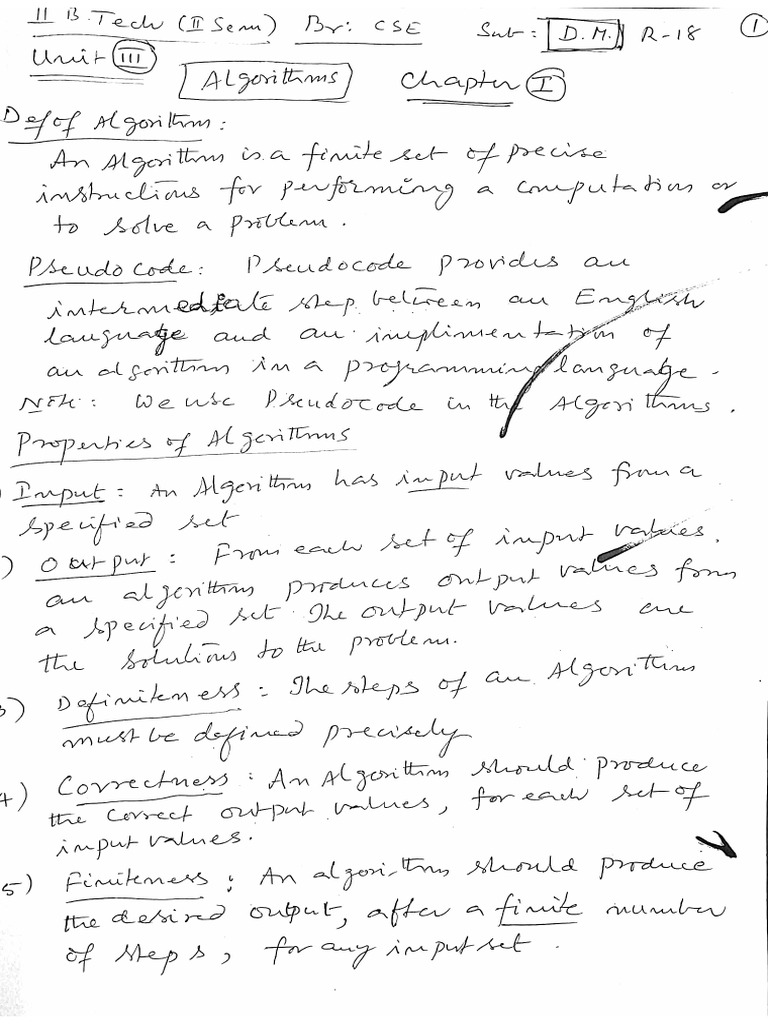 II B.Tech (II Sem) Br: CSE Sub: D.M. R-18 1
Unit III Algorithms Chapter I
Def of Algorithm:
An Algorithm is a finite set of precise
instructions for performing a computation or
to solve a problem.
Pseudo code: Pseudocode provides an
intermediate step between an English
language and an implimentation of
an algorithm in a programming language.
Note: We use Pseudocode in the Algorithms.
Properties of Algorithms
) Input: An Algorithm has input values from a
specified set
) Output: From each set of input values,
an algorithm produces output values from
a specified set. The output values are
the solutions to the problem.
3) Definiteness: The steps of an Algorithm
must be defined precisely
4) Correctness: An Algorithm should produce
the correct output values, for each set of
input values.
5) Finiteness: An algorithm should produce
the desired output, after a finite number
of steps, for any input set.